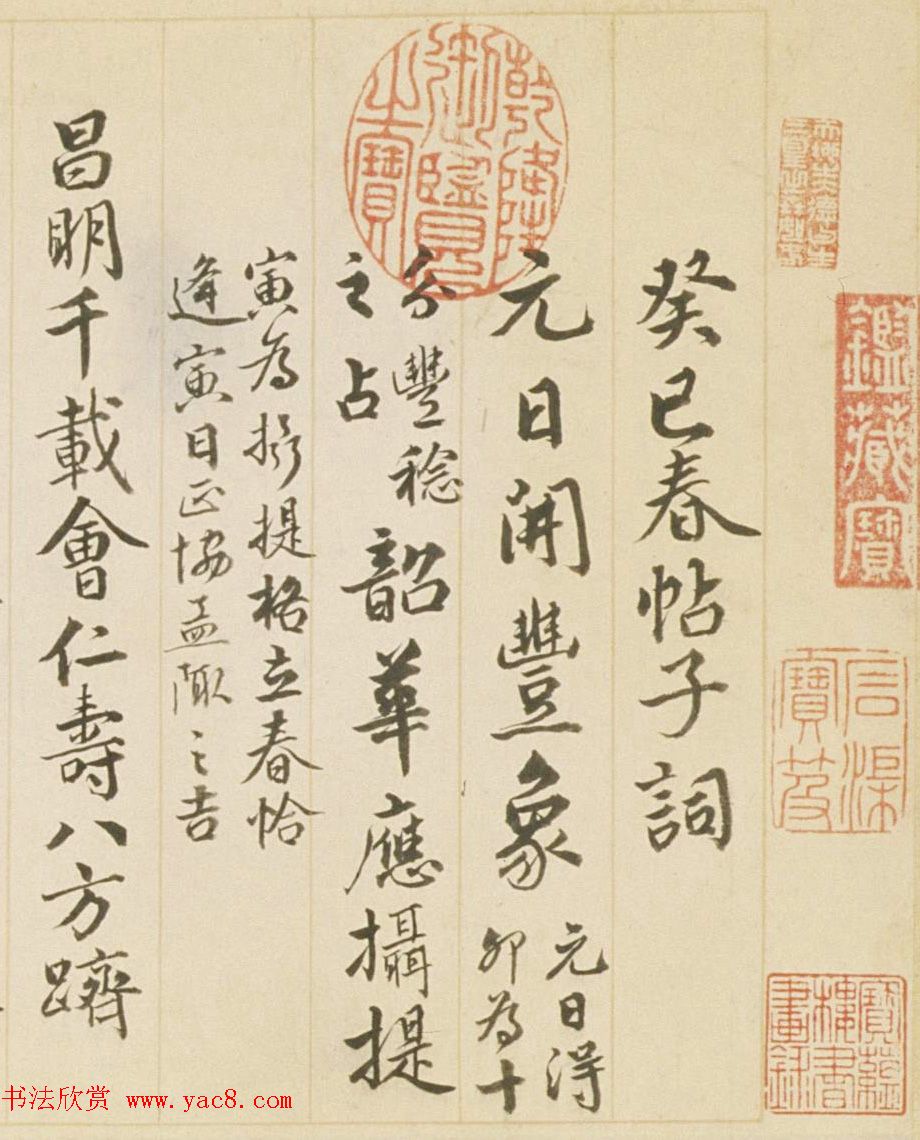 鑑藏寶
石渠
寶笈
寶蘊
樓書
畫錄
癸巳春帖子詞
元日開豐象
元日得
卯為十
乾隆
御覽
之寶
分豐稔
之占
韶華應攝提
寅為攝提格立春恰
逢寅日正協孟陬之吉
昌明千載會仁壽八方躋
书法欣赏 www.yac8.com